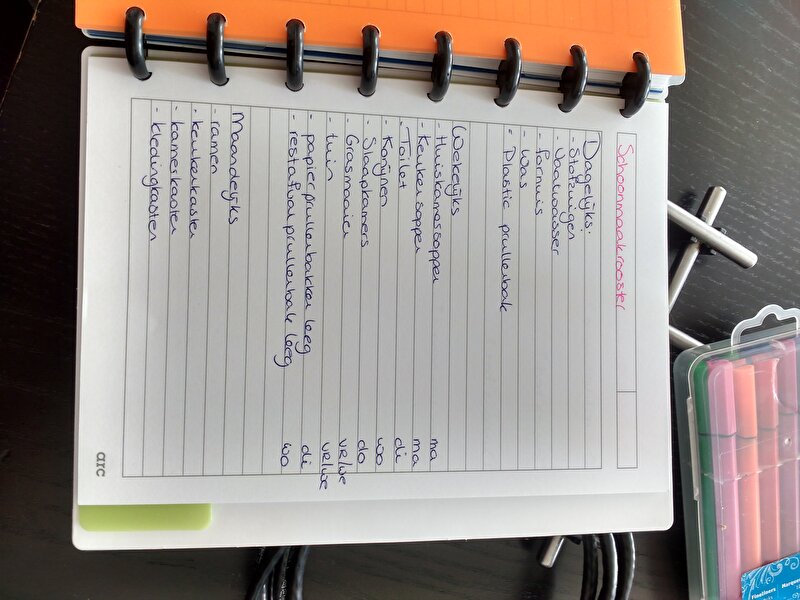 Schoonmaakrooster
Dagelijks:
- Stofzuigen
- Vaatwasser
- Fornuis
- Was
- Plastic prullenbak
Wekelijks
- Huiskamer soppen ma
- Keuken soppen ma
- Toilet di
- Konijnen wo
- Slaapkamers do
- Grasmaaien vr/we
- tuin vr/we
- papier prullenbakken leeg di
- restafval prullenbak leeg wo
Maandelijks
- ramen
- keukenkasten
- kamerkasten
- kledingkasten
arc
Fineliners